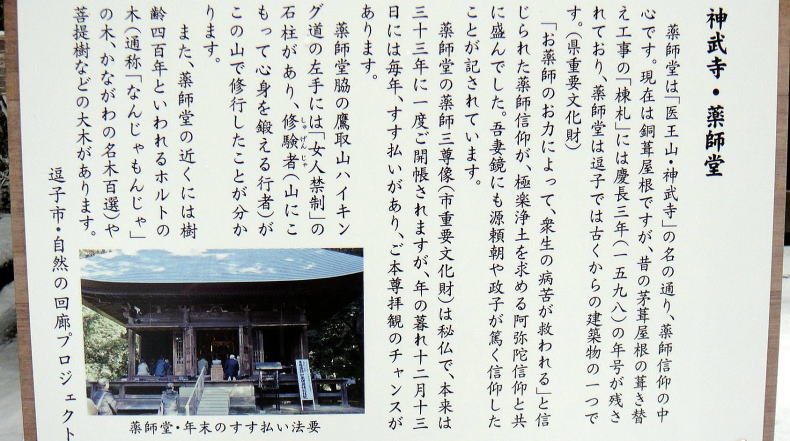 神武寺・薬師堂
薬師堂は「医王山・神武寺」の名の通り、薬師信仰の中
心です。現在は銅葺屋根ですが、昔の茅葺屋根の葺き替
え工事の「棟札」には慶長三年（一五九八）の年号が残さ
れており、薬師堂は逗子では古くからの建築物の一つで
す。（県重要文化財）
「お薬師のお力によって、衆生の病苦が救われる」と信
じられた薬師信仰が、極楽浄土を求める阿弥陀信仰と共
に盛んでした。吾妻鏡にも源頼朝や政子が篤く信仰した
ことが記されています。
薬師堂の薬師三尊像（市重要文化財）は秘仏で、本来は
三十三年に一度ご開帳されますが、年の暮れ十二月十三
日には毎年、すす払いがあり、ご本尊拝観のチャンスが
あります。
薬師堂脇の鷹取山ハイキン
グ道の左手には「女人禁制」の
石柱があり、修験者（山にこ
しゅげんじゃ
もって心身を鍛える行者）が
この山で修行したことが分か
ります。
また、薬師堂の近くには樹
齢四百年といわれるホルトの
木（通称「なんじゃもんじゃ」
の木、かながわの名木百選）や
菩提樹などの大木があります。
逗子市・自然の回廊プロジェクト
薬師堂・年末のすす払い法要